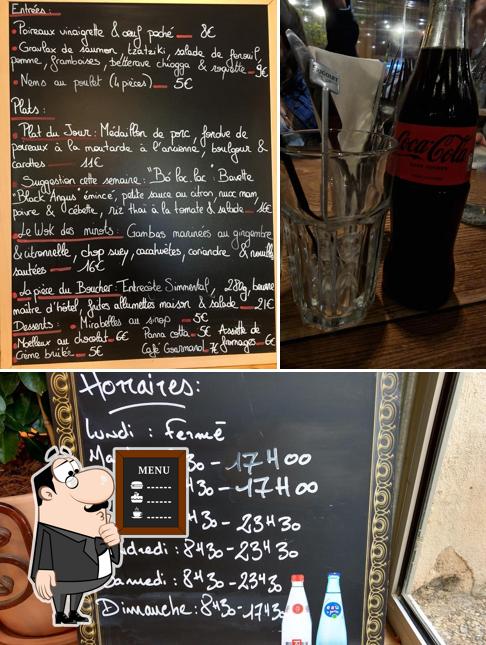 Entrées:
• Poireaux vinaigrette & œuf poché — 8€
• Gravlax de saumon, tzatziki, salade de fenouil,
pomme, framboises, betterave chiogga & roquette — 9€
• Nems au poulet (4 pièces) — 5€
Plats:
• Plat du Jour: Médaillon de porc, fondue de
poireaux à la moutarde à l'ancienne, boulgour &
carottes — 11€
• Suggestion cette semaine: "Bò lọc lắc": Bavette
"Black Angus" émincé, petite sauce au citron, nuoc mam,
poivre & cébette, riz thaï à la tomate & salade — 16€
• Le Wok des minots: Gambas marinées au gingembre
& citronnelle, chop suey, cacahuètes, coriandre & nouilles
sautées — 16€
• La pièce du Boucher: Entrecôte Simmental, 280g, beurre
maître d'hôtel, frites allumettes maison & salade — 21€
Desserts: • Mirabelles au sirop — 5€
Moelleux au chocolat — 6€ Panna cotta — 5€ Assiette de
fromages — 6€
Crème brûlée — 5€ Café Gourmand — 7€
Coca-Cola
Horaires:
Lundi : Fermé
30 - 17H00
- 17H00
H30 - 23H30
dredi : 8H30 - 23H30
amedi : 8H30 - 23H30
Dimanche : 8H30 - 17H30
MENU